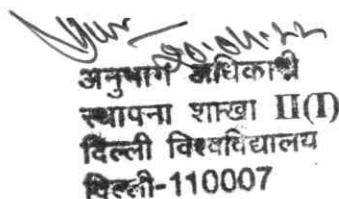 20.04.22
अनुभाग अधिकारी
स्थापना शाखा II(I)
दिल्ली विश्वविद्यालय
दिल्ली-110007